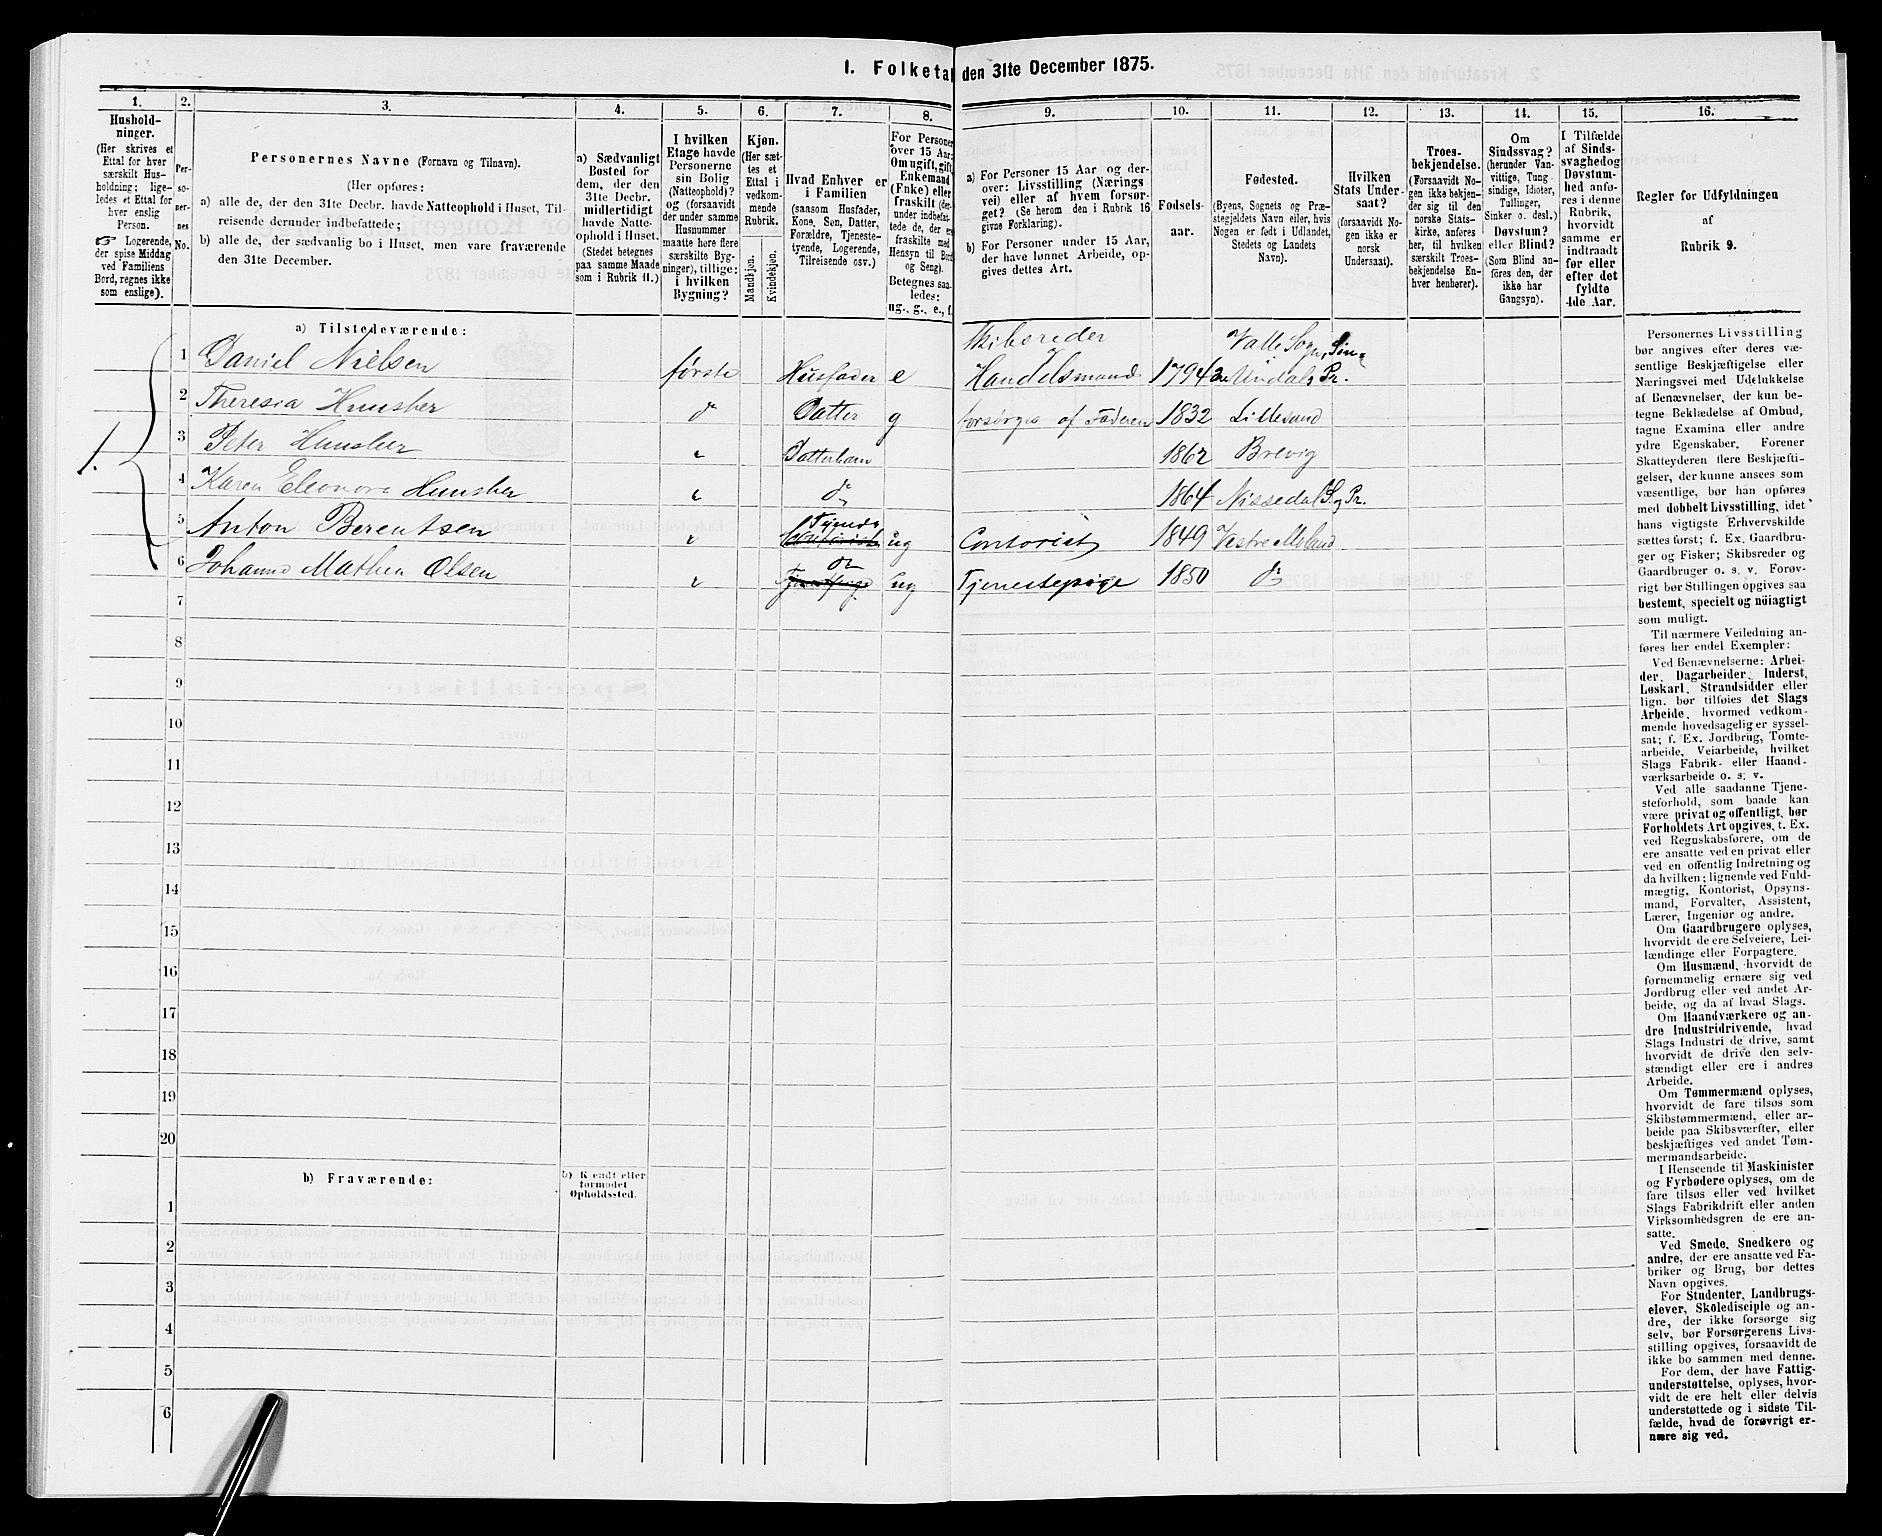 I. Folketa den 31te December 1875.
1. 2. 3. 4. 5. 6. 7. 8. 9. 10. 11. 12. 13. 14. 15. 16.
Hushold-
ninger.
(Her skrives et
Ettal for hver
særskilt Hus-
holdning; lige-
ledes et Ettal
for hver
enslig
Person.
☞ Logerende,
der spise Middag
ved Familiens
Bord, regnes ikke
som enslige).
Per-
so-
ner-
nes
No.
Personernes Navne (Fornavn og Tilnavn).
(Her opføres:
a) alle de, der den 31te Decbr. havde Natteophold i Huset, Til-
reisende derunder indbefattede;
b) alle de, der sædvanlig bo i Huset, men vare fraværende
den 31te December.
a) Sædvanligt
Bosted for
dem, der den
31te Decbr.
midlertidigt
havde Natte-
ophold i Huset.
(Stedet betegnes
paa samme Maade
som i Rubrik 11.)
I hvilken
Etage havde
Personerne
sin Bolig
(Natteophold)?
og (forsaavidt
der under samme
Husnummer
maatte høre flere
særskilte Byg-
ninger), tillige:
i hvilken
Bygning?
Kjøn.
(Her sæt-
tes et
Ettal i
vedkom-
mende
Rubrik.
Mandkjøn.
Kvindekjøn.
Hvad Enhver er
i Familien
(saasom Husfader,
Kone, Søn, Datter,
Forældre, Tjeneste-
tyende, Logerende,
Tilreisende osv.)
For Persone
over 15 Aar:
Om ugift, gift,
Enkemand
(Enke) eller
fraskilt (der-
under indbefat-
tede de, der er
fraskilte med
Hensyn til Bord
og Seng).
Betegnes saa-
ledes:
ug., g., e., f.
a) For Personer 15 Aar og der-
over: Livsstilling (Nærings
vei) eller af hvem forsør-
get? (Se herom den i Rubrik 16
givne Forklaring).
b) For Personer under 15 Aar,
der have lønnet Arbeide, op-
gives dettes Art.
Fødsels-
aar.
Fødested.
(Byens, Sognets og Præ-
stegjeldets Navn eller, hvis
Nogen er født i Udlandet,
Stedets og Landets
Navn).
Hvilken
Stats Under-
saat?
(forsaavidt No-
gen ikke er
norsk
Undersaat).
Troes-
bekjendelse.
(Forsaavidt No-
gen ikke bekjen-
der sig til den
norske Stats-
kirke, anføres
her, til hvilken
særskilt Troes-
bekjendelse En-
hver henhører).
Om
Sindssvag?
(herunder Van-
vittige, Tung
sindige, Idioter,
Tullinger,
Sinker o. desl.)
Døvstum?
eller Blind?
(Som Blind an-
føres den, der
ikke har
Gangsyn).
I Tilfælde
af Sinds-
svaghed og
Døvstum-
hed anfø-
res i denne
Rubrik,
hvorvidt
samme er
indtraadt
før eller
efter det
fyldte
4de Aar.
Regler for Udfyldningen
af
Rubrik 9.
a) Tilstedeværende:
1. 1 Daniel Nielsen første Husfader e Skibsreder Handelsmand 1794 Valle Sogn, Søn- Undals Pr.
2 Theresia Hunsber do Datter g forsørges af Faderen 1832 Lillesand
3 Peter Hunsber " Datterbarn 1862 Brevig
4 Karen Eleonora Hunsber " do 1864 Nissedal S. Pr.
5 Anton Berentsen " Tjende Contorist ug Contorist 1849 Vestre Moland
6 Johanne Mathea Olsen " do ug Tjenestepige 1850 do
7
8
9
10
11
12
13
14
15
16
17
18
19
20
b) Fraværende:
b) K endt eller
formodet
Opholdssted.
1
2
3
4
5
6
Personernes Livsstilling
bør angives efter deres væ-
sentlige Beskjæftigelse eller
Næringsvei med Udelukkelse
af Benævnelser, der kun be-
tegne Beklædelse af Ombud,
tagne Examina eller andre
ydre Egenskaber. Forener
Skatteyderen flere Beskjæfti-
gelser, der kunne ansees som
væsentlige, bør han opføres
med dobbelt Livsstilling, idet
hans vigtigste Erhvervskilde
sættes først; f. Ex. Gaardbru-
ger og Fisker; Skibsreder og
Gaardbruger o. s. v. Forøv-
rigt bør Stillingen opgives saa
bestemt, specielt og nöiagtigt
som muligt.
Til nærmere Veiledning an-
føres her endel Exempler:
Ved Benævnelserne: Arbei-
der, Dagarbeider, Inderst,
Løskarl, Strandsidder eller
lign. bør tilføies det Slags
Arbeide, hvormed vedkom-
mende hovedsagelig er syssel-
sat; f. Ex. Jordbrug, Tomte-
arbeide, Veiarbeide, hvilket
Slags Fabrik- eller Haand-
værksarbeide o. s. v.
Ved alle saadanne Tjene-
steforhold, som baade kan
være privat og offentligt, bør
Forholdets Art opgives, t. Ex.
ved Regnskabsførere, om de
ere ansatte ved en privat eller
ved en offentlig Indretning og
da hvilken; lignende ved Fuld-
mægtig, Kontorist, Opsyns-
mand, Forvalter, Assistent,
Lærer, Ingeniør og andre.
Om Gaardbrugere oplyses,
hvorvidt de ere Selveiere, Lei-
lændinge eller Forpagtere.
Om Husmænd, hvorvidt de
fornemmelig ernære sig ved
Jordbrug eller ved andet Ar-
beide, og da af hvad Slags.
Om Haandværkere og an-
dre Industridrivende, hvad
Slags Industri de drive, samt
hvorvidt de drive den selv-
stændigt eller ere i andres
Arbeide.
Om Tømmermænd oplyses,
hvorvidt de fare tilsøs som
Skibstømmermænd, eller ar-
beide paa Skibsværfter, eller
beskjæftiges ved andet Tøm-
mermandsarbeide.
I Henseende til Maskinister
og Fyrbødere oplyses, om de
fare tilsøs eller ved hvilket
Slags Fabrikdrift eller anden
Virksomhedsgren de ere an-
satte.
Ved Smede, Snedkere og
andre, der ere ansatte ved Fa-
briker og Brug, bør dettes
Navn opgives.
For Studenter, Landbrugs-
elever, Skoledisciple og an-
dre, der ikke forsørge sig
selv, bør Forsørgerens Livs-
stilling opgives, forsaavidt de
ikke bo sammen med denne.
For dem, der have Fattig-
understøttelse, oplyses, hvor-
vidt de ere helt eller delvis
understøttede og i sidste Til-
fælde, hvad de forøvrigt er-
nære sig ved.